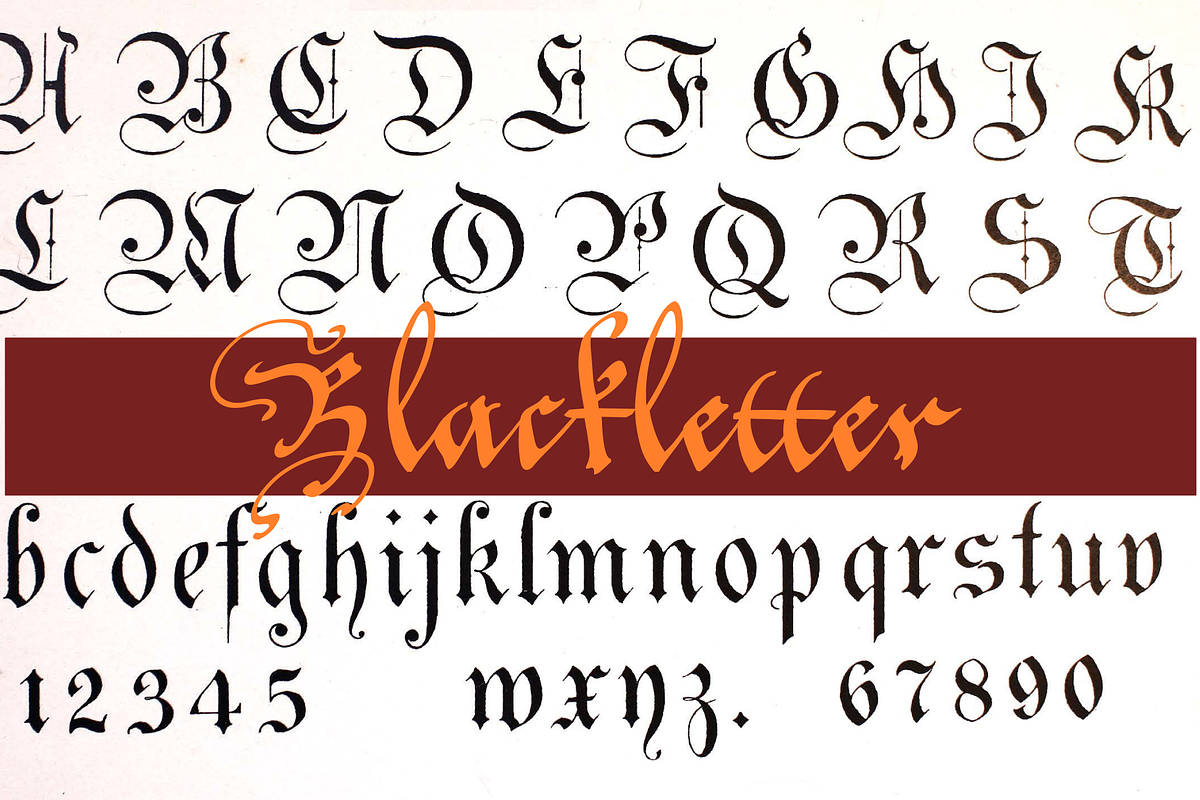 A B C D E F G H I K
L M N O P Q R S T
Blackletter
b c d e f g h i j k l m n o p q r s t u v
1 2 3 4 5 w x y z . 6 7 8 9 0